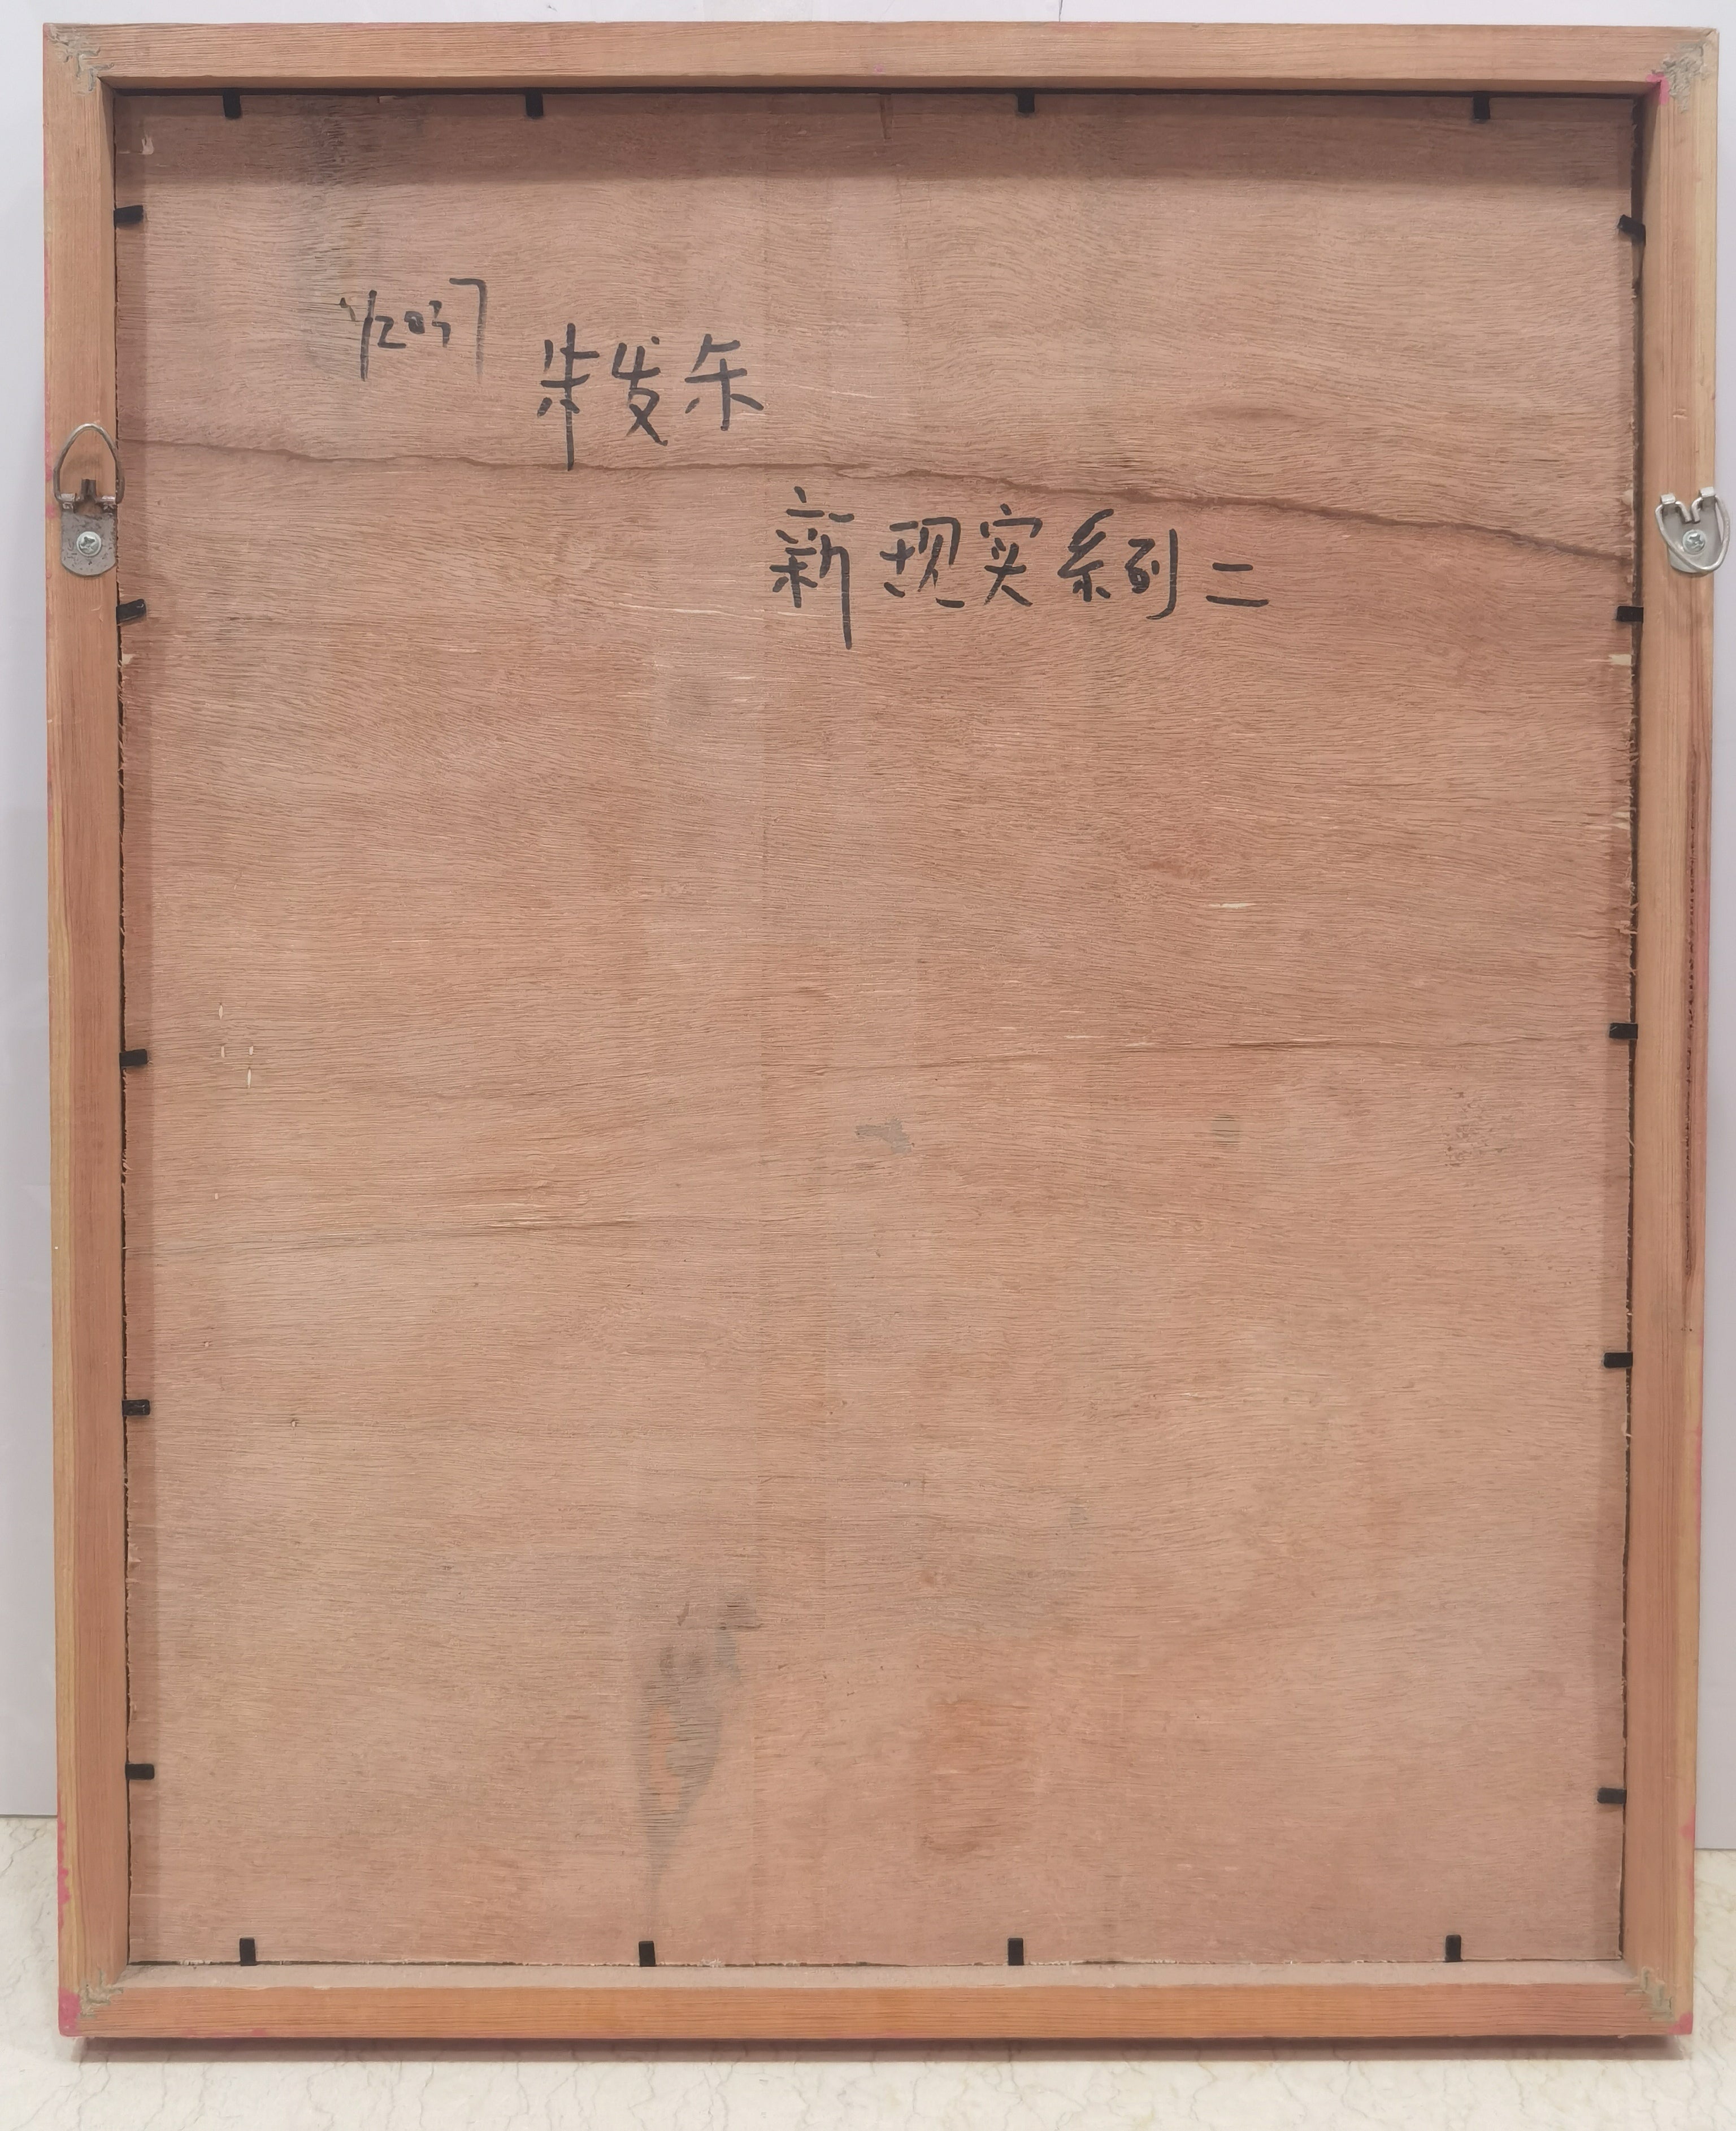 朱发东
新现实系列二